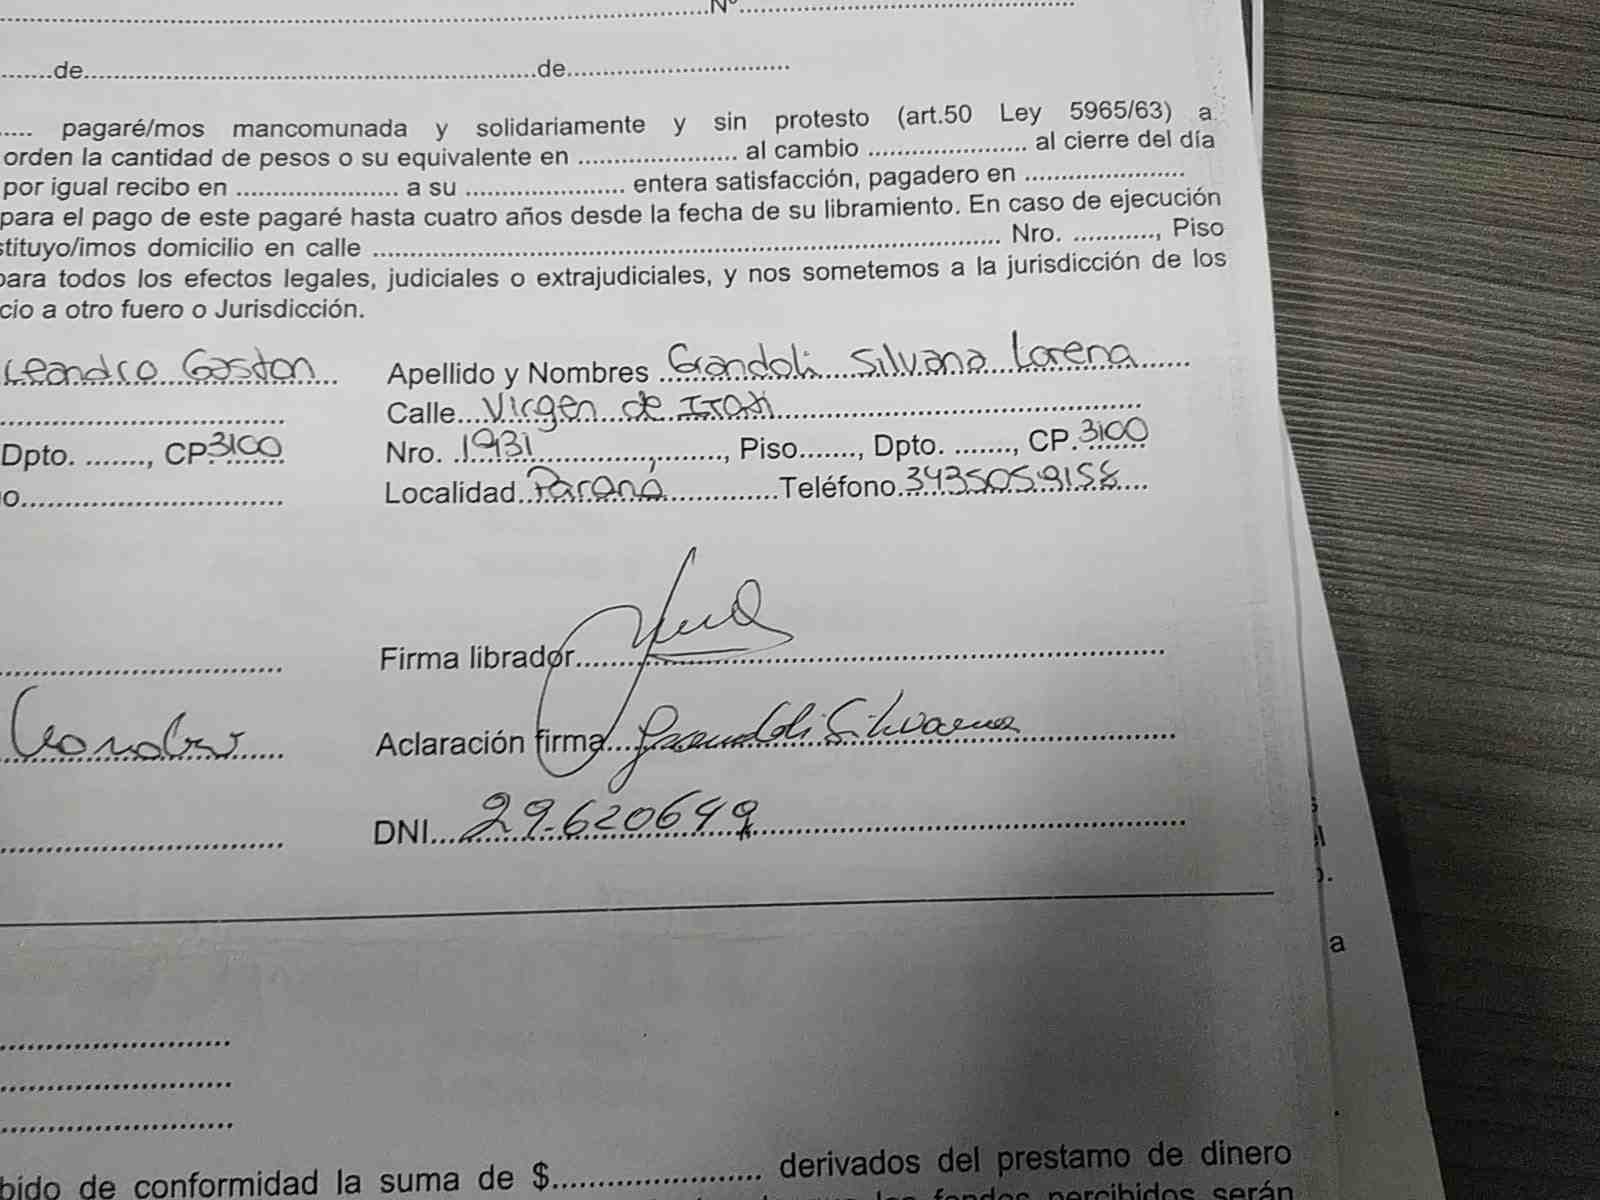 Nº
de de
pagaré/mos mancomunada y solidariamente y sin protesto (art.50 Ley 5965/63) a
orden la cantidad de pesos o su equivalente en ...................... al cambio ...................... al cierre del día
por igual recibo en ...................... a su ...................... entera satisfacción, pagadero en ......................
para el pago de este pagaré hasta cuatro años desde la fecha de su libramiento. En caso de ejecución
stituyo/imos domicilio en calle ...................... Nro. ..........., Piso
para todos los efectos legales, judiciales o extrajudiciales, y nos sometemos a la jurisdicción de los
cio a otro fuero o Jurisdicción.
Leandro Gaston Apellido y Nombres Grandoli Silvana Lorena
Calle Virgen de Itati
Dpto. ......., CP.3100 Nro. 1931, Piso......., Dpto. ......., CP.3100
o Localidad Paraná Teléfono 3435059158
Firma librador
Leandro Aclaración firma Grandoli Silvana
DNI 29.620649
a
bido de conformidad la suma de $...................... derivados del prestamo de dinero
los fondos percibidos serán